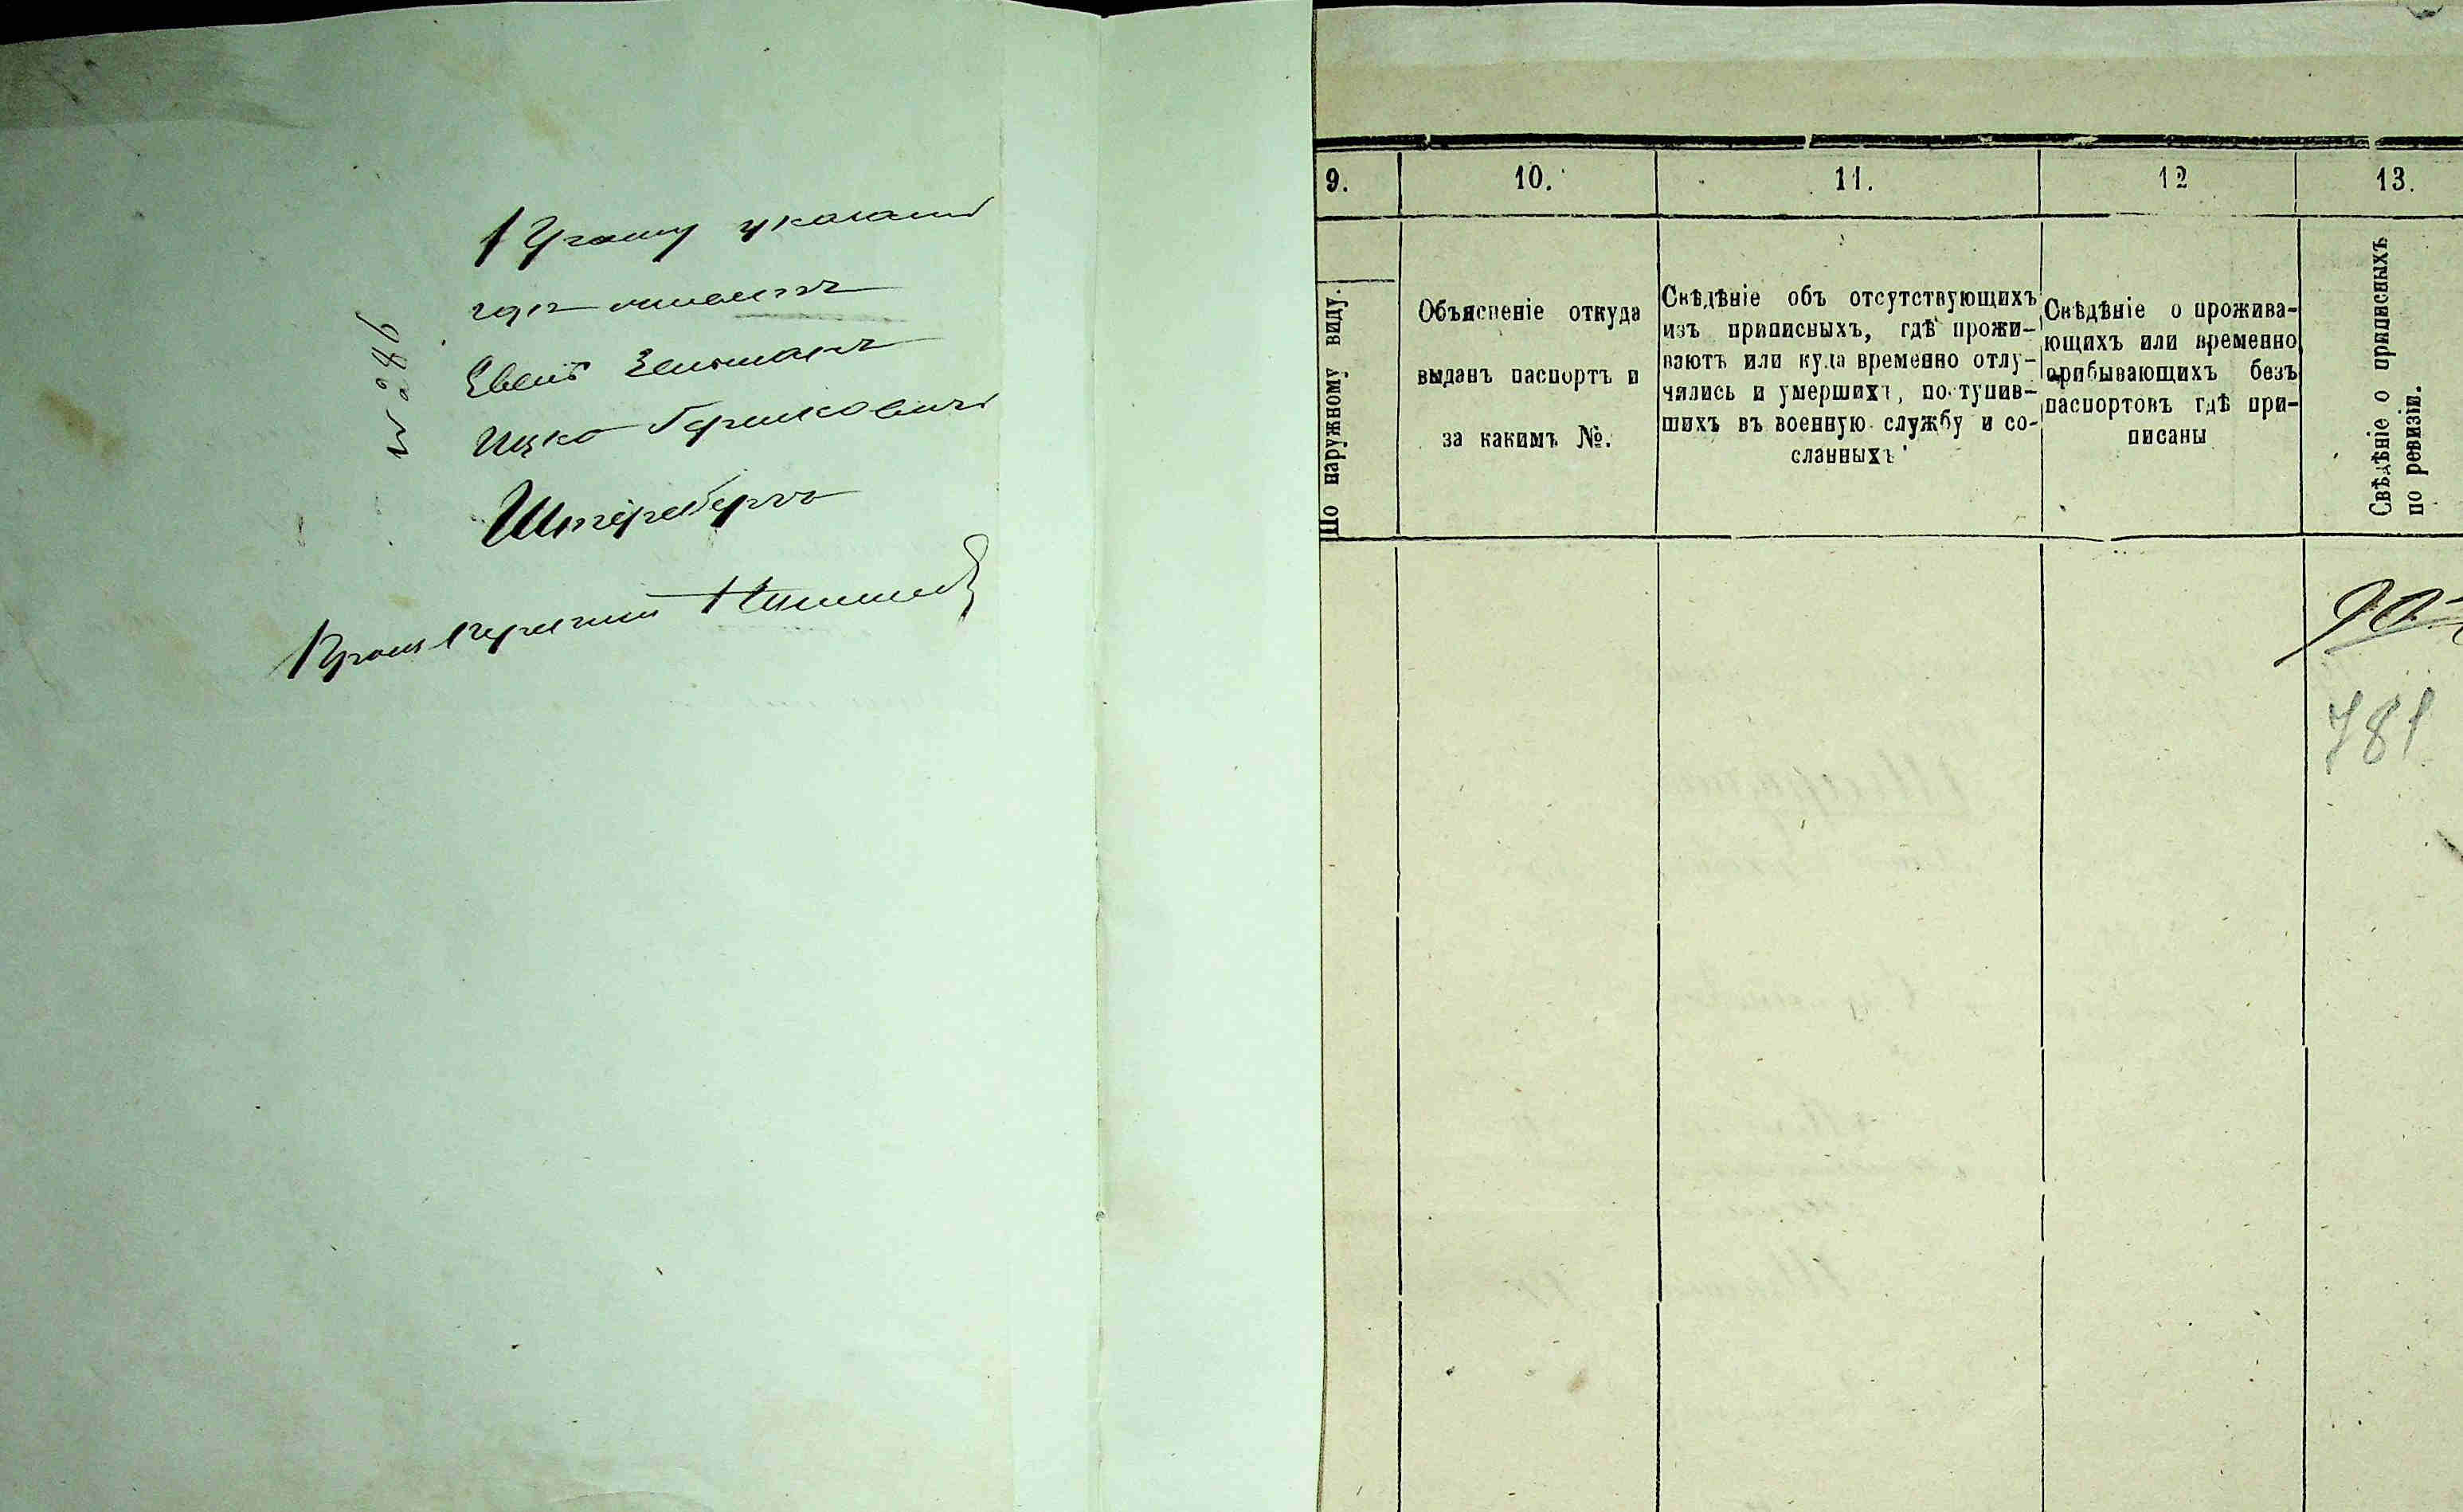 Прошу указать
где живетъ
Еврей Зельманъ
Ицко Гершковичъ
Штернбергъ
№ 286
9.
10.
11.
12
13.
По наружному виду.
Объясненіе откуда
выданъ паспортъ и
за какимъ №.
Свѣдѣніе объ отсутствующихъ
изъ приписныхъ, гдѣ прожи-
ваютъ или куда временно отлу-
чились и умершихъ, поступив-
шихъ въ военную службу и со-
сланныхъ
Свѣдѣніе о прожива-
ющихъ или временно
прибывающихъ безъ
паспортовъ гдѣ при-
писаны
Свѣдѣніе о приписныхъ
по ревизіи.
781